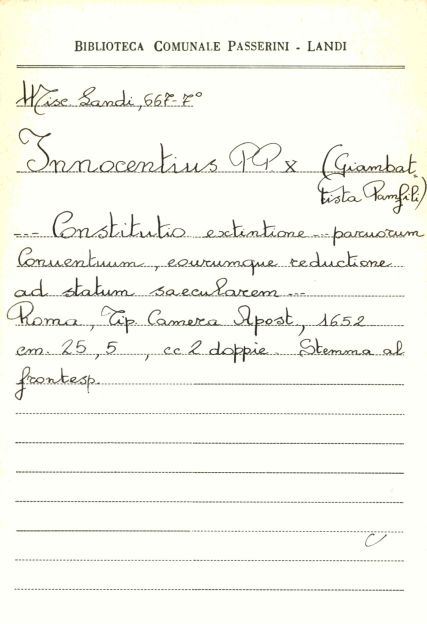 BIBLIOTECA COMUNALE PASSERINI - LANDI
Misc. Landi, 667-7°
Innocentius PP. X (Giambat
tista Pamfili)
... Constitutio extintione ... paruorum
Conuentuum, eorumque reductione
ad statum saecularem ...
Roma, Tip. Camera Apost, 1652
cm. 25,5 , cc 2 doppie. Stemma al
frontesp.
C